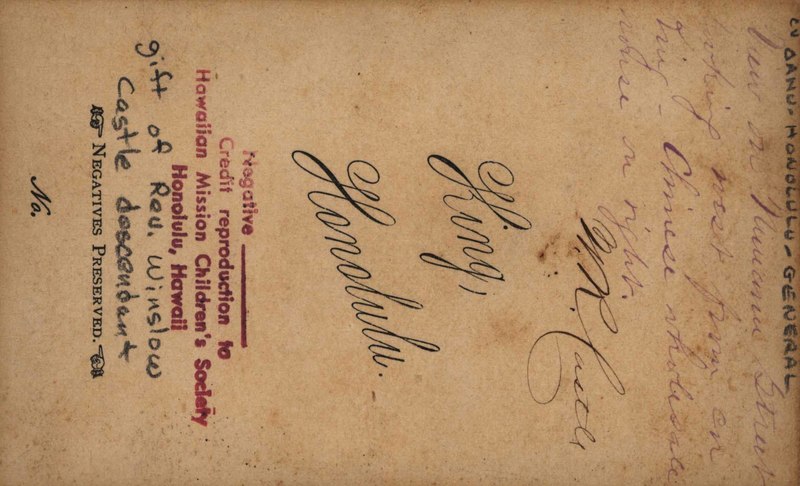 OAHU-HONOLULU-GENERAL
View on Nuuanu Street
looking west from
King - Chinese wholesale
house on right.
W. R. Castle
King,
Honolulu.
Negative
Credit reproduction to
Hawaiian Mission Children's Society
Honolulu, Hawaii
gift of Rev. Winslow
Castle descendant
NEGATIVES PRESERVED.
No.